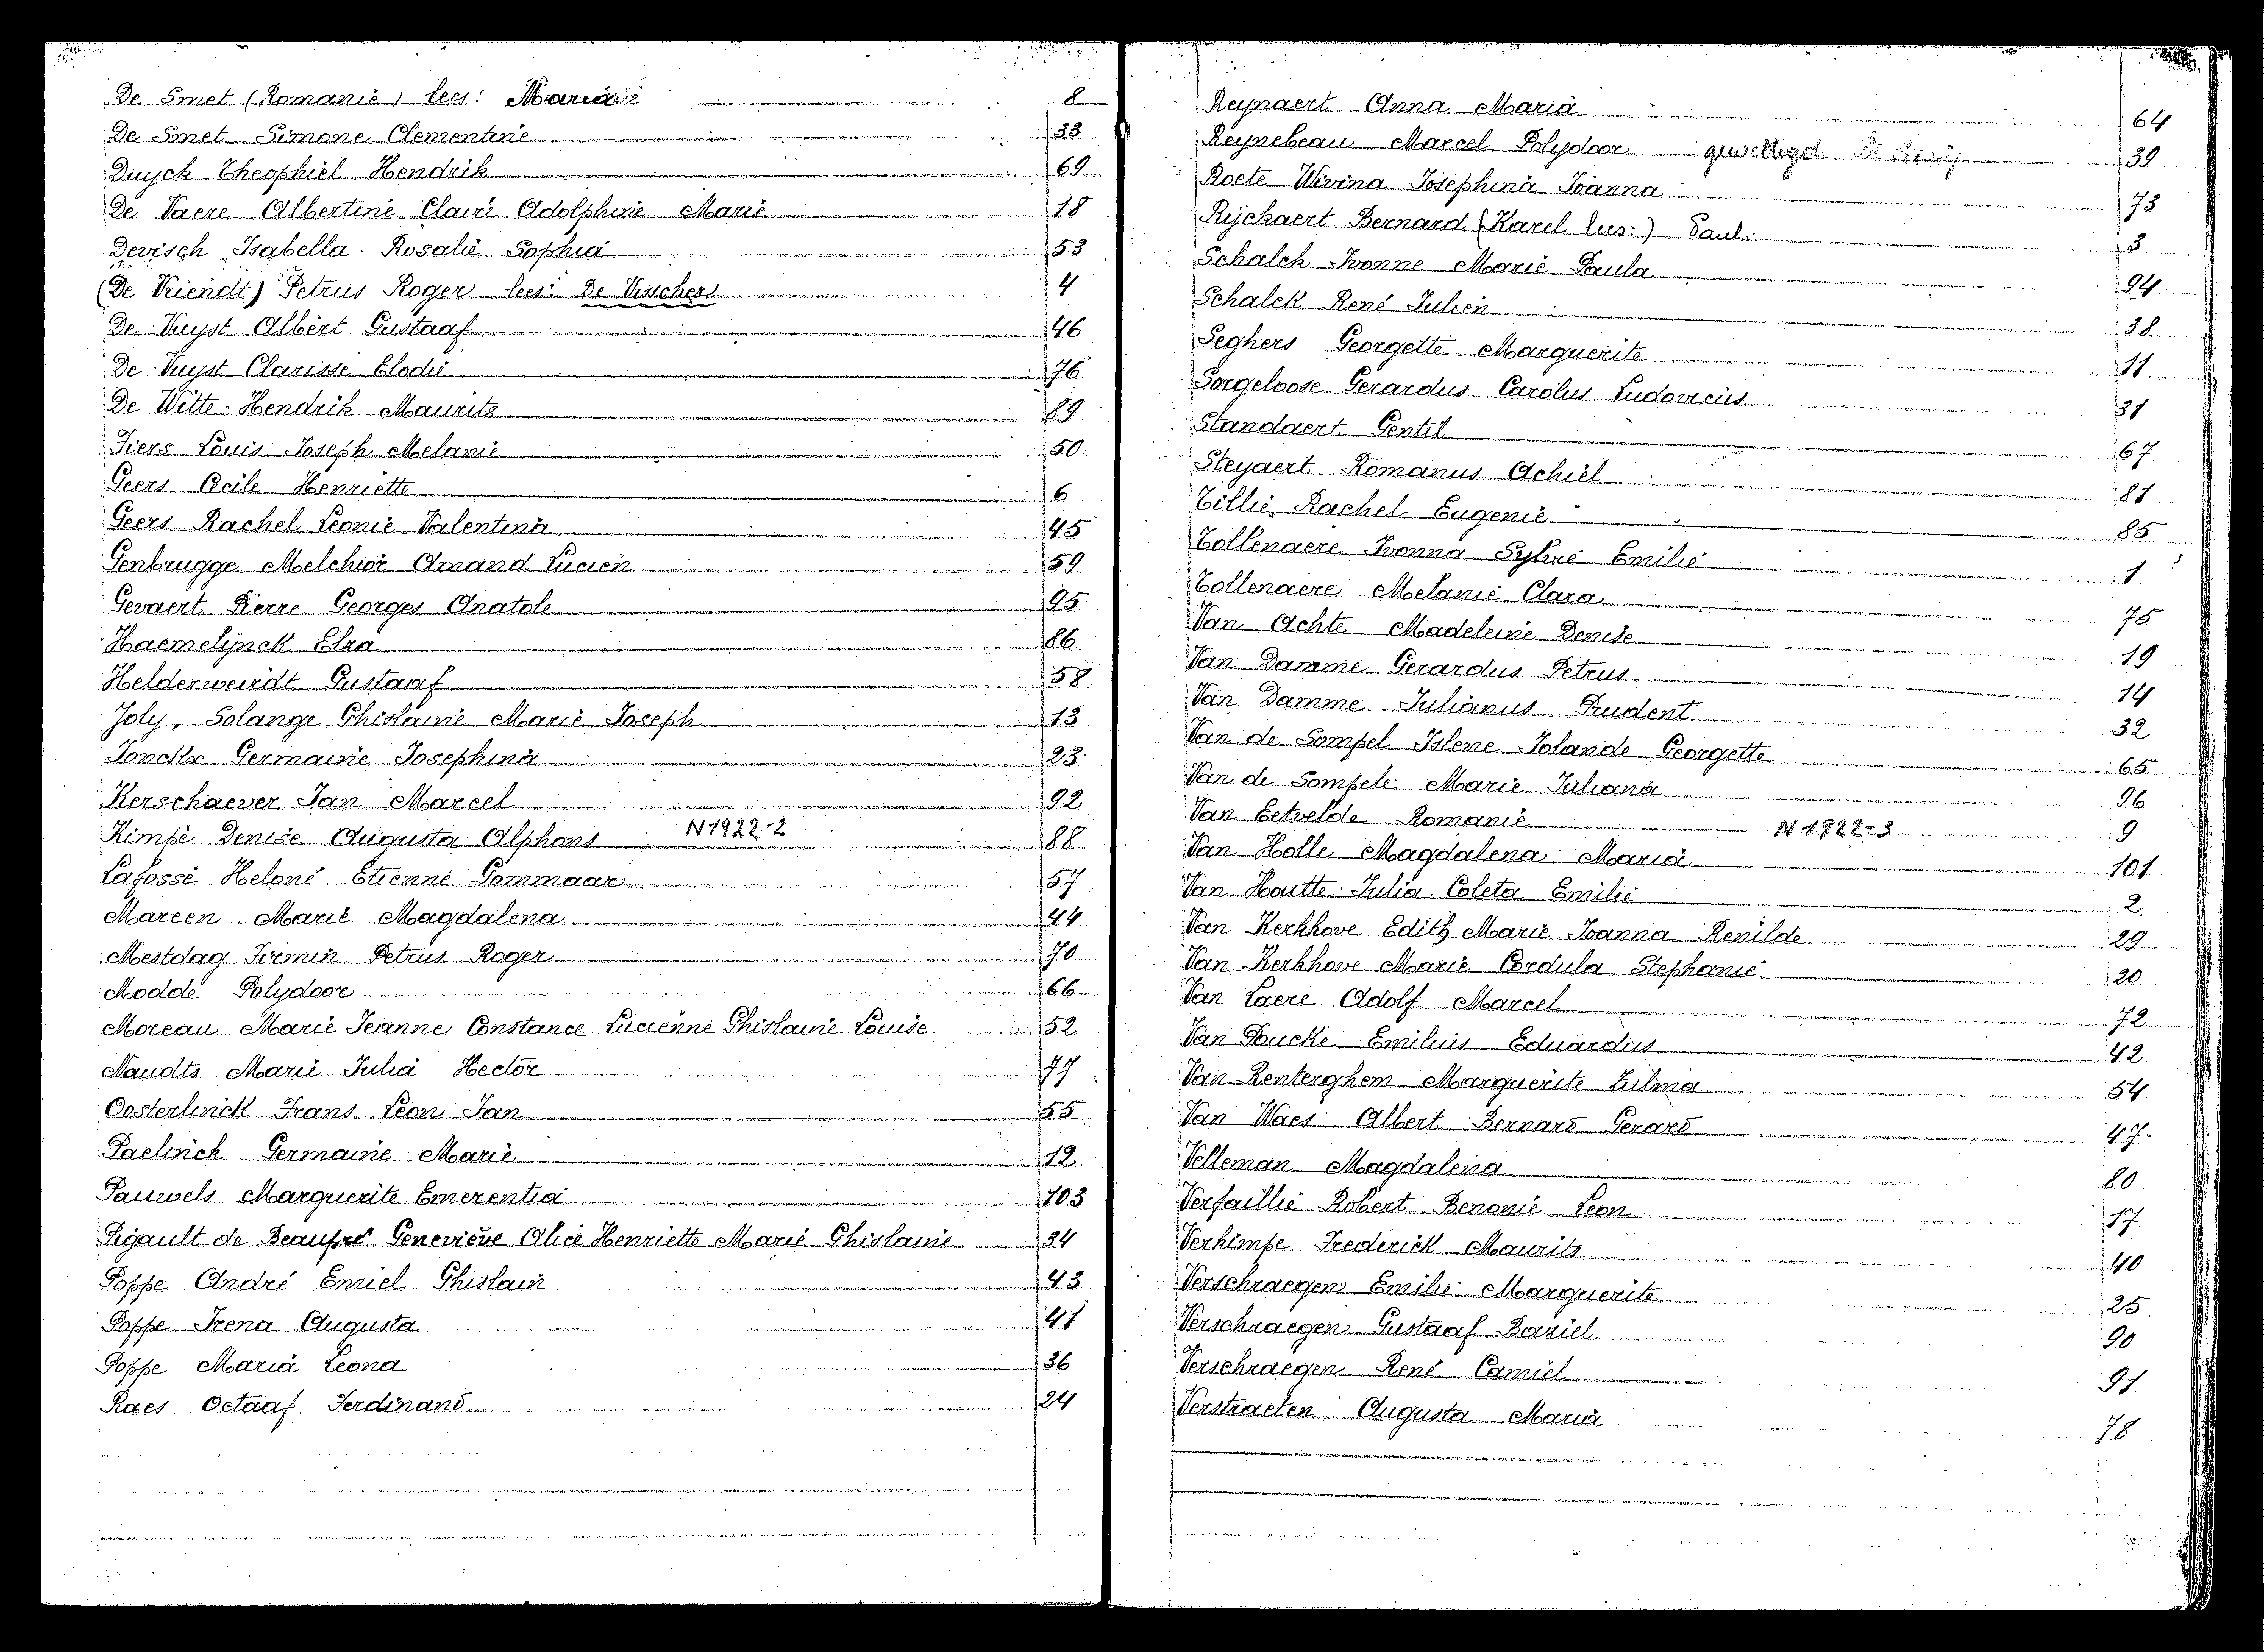 De Smet (Romanie) lees: Maria 8
De Smet Simone Clementine 33
Duyck Theophiel Hendrik 69
De Vaere Albertine Claire Adolphine Marie 18
Devisch Isabella Rosalie Sophia 53
(De Vriendt) Petrus Roger lees: De Visscher 4
De Vuyst Albert Gustaaf 46
De Vuyst Clarisse Elodie 76
De Witte Hendrik Maurits 89
Fiers Louis Joseph Melanie 50
Geers Cecile Henriette 6
Geers Rachel Leonie Valentina 45
Genbrugge Melchior Amand Lucien 59
Gevaert Pierre Georges Anatole 95
Haemelijnck Elza 86
Helderweirdt Gustaaf 58
Joly, Solange Ghislaine Marie Joseph 13
Jonckx Germaine Josephina 23
Kerschaever Jan Marcel 92
Kimpe Denise Augusta Alphons N1922-2 88
Lafosse Heloné Etienne Gommaar 57
Mareen Marie Magdalena 44
Mestdag Firmin Petrus Roger 70
Modde Polydoor 66
Moreau Marie Jeanne Constance Lucienne Ghislaine Louise 52
Naudts Marie Julia Hector 77
Oosterlinck Frans Leon Jan 55
Paelinck Germaine Marie 12
Pauwels Marguerite Emerentia 103
Pigault de Beaupré Geneviève Alice Henriette Marie Ghislaine 34
Poppe André Emiel Ghislain 43
Poppe Irena Augusta 41
Poppe Maria Leona 36
Raes Octaaf Ferdinand 24
Reynaert Anna Maria 64
Reynebeau Marcel Polydoor gewettigd 39
Roete Wivina Josephina Joanna 73
Rijckaert Bernard (Karel lees:) Paul 3
Schalck Ivonne Marie Paula 94
Schalck René Julien 38
Seghers Georgette Marguerite 11
Sorgeloose Gerardus Carolus Ludovicus 31
Standaert Gentil 67
Steyaert Romanus Achiel 81
Tillie, Rachel Eugenie 85
Tollenaere Ivonna Sylvie Emilie 1
Tollenaere Melanie Clara 75
Van Achte Madeleine Denise 19
Van Damme Gerardus Petrus 14
Van Damme Julianus Prudent 32
Van de Sompel Islene Iolande Georgette 65
Van de Sompele Marie Juliana 96
Van Eetvelde Romanie N 1922-3 9
Van Holle Magdalena Maria 101
Van Houtte Julia Coleta Emilie 2
Van Kerkhove Edith Marie Joanna Renilde 29
Van Kerkhove Marie Cordula Stephanie 20
Van Laere Adolf Marcel 72
Van Poucke Emilius Eduardus 42
Van Renterghem Marguerite Zulma 54
Van Waes Albert Bernard Gerard 47
Velleman Magdalena 80
Verfaillie Robert Benonie Leon 17
Verkimpe Frederick Maurits 40
Verschraegen Emilie Marguerite 25
Verschraegen Gustaaf Baziel 90
Verschraegen René Camiel 91
Verstraeten Augusta Maria 78